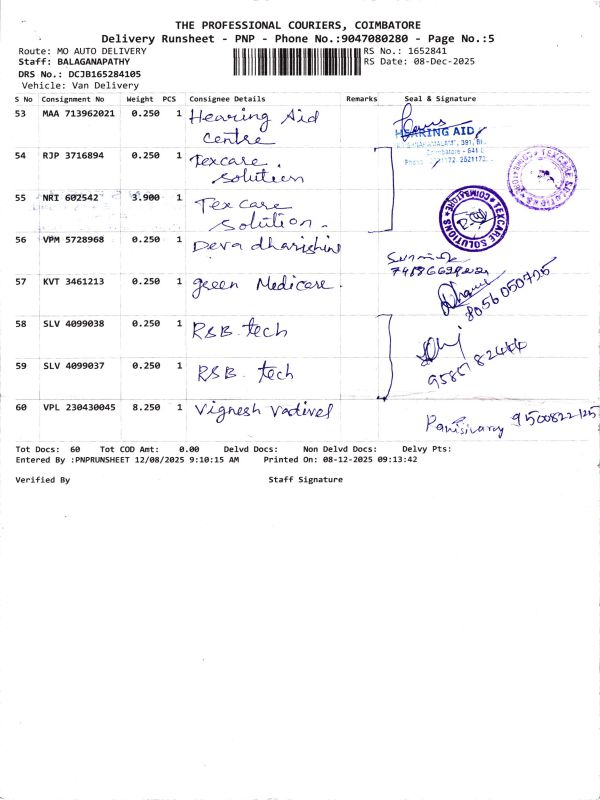 THE PROFESSIONAL COURIERS, COIMBATORE
Delivery Runsheet - PNP - Phone No.:9047080280 - Page No.:5
Route: MO AUTO DELIVERY RS No.: 1652841
Staff: BALAGANAPATHY RS Date: 08-Dec-2025
DRS No.: DCJB165284105
Vehicle: Van Delivery
S No Consignment No Weight PCS Consignee Details Remarks Seal & Signature
53 MAA 713962021 0.250 1 Hearing Aid
centre
HEARING AID
54 RJP 3716894 0.250 1 Texcare.
solution
TEXCARE SOLUTIONS
55 NRI 602542 3.900 1 Tex care
solution.
TEXCARE SOLUTIONS COIMBATORE
56 VPM 5728968 0.250 1 Deva dharishini
57 KVT 3461213 0.250 1 green Medicare.
8056050725
58 SLV 4099038 0.250 1 RSB. tech
59 SLV 4099037 0.250 1 RSB. tech
60 VPL 230430045 8.250 1 Vignesh Vadivel
9500822125
Tot Docs: 60 Tot COD Amt: 0.00 Delvd Docs: Non Delvd Docs: Delvy Pts:
Entered By :PNPRUNSHEET 12/08/2025 9:10:15 AM Printed On: 08-12-2025 09:13:42
Verified By Staff Signature